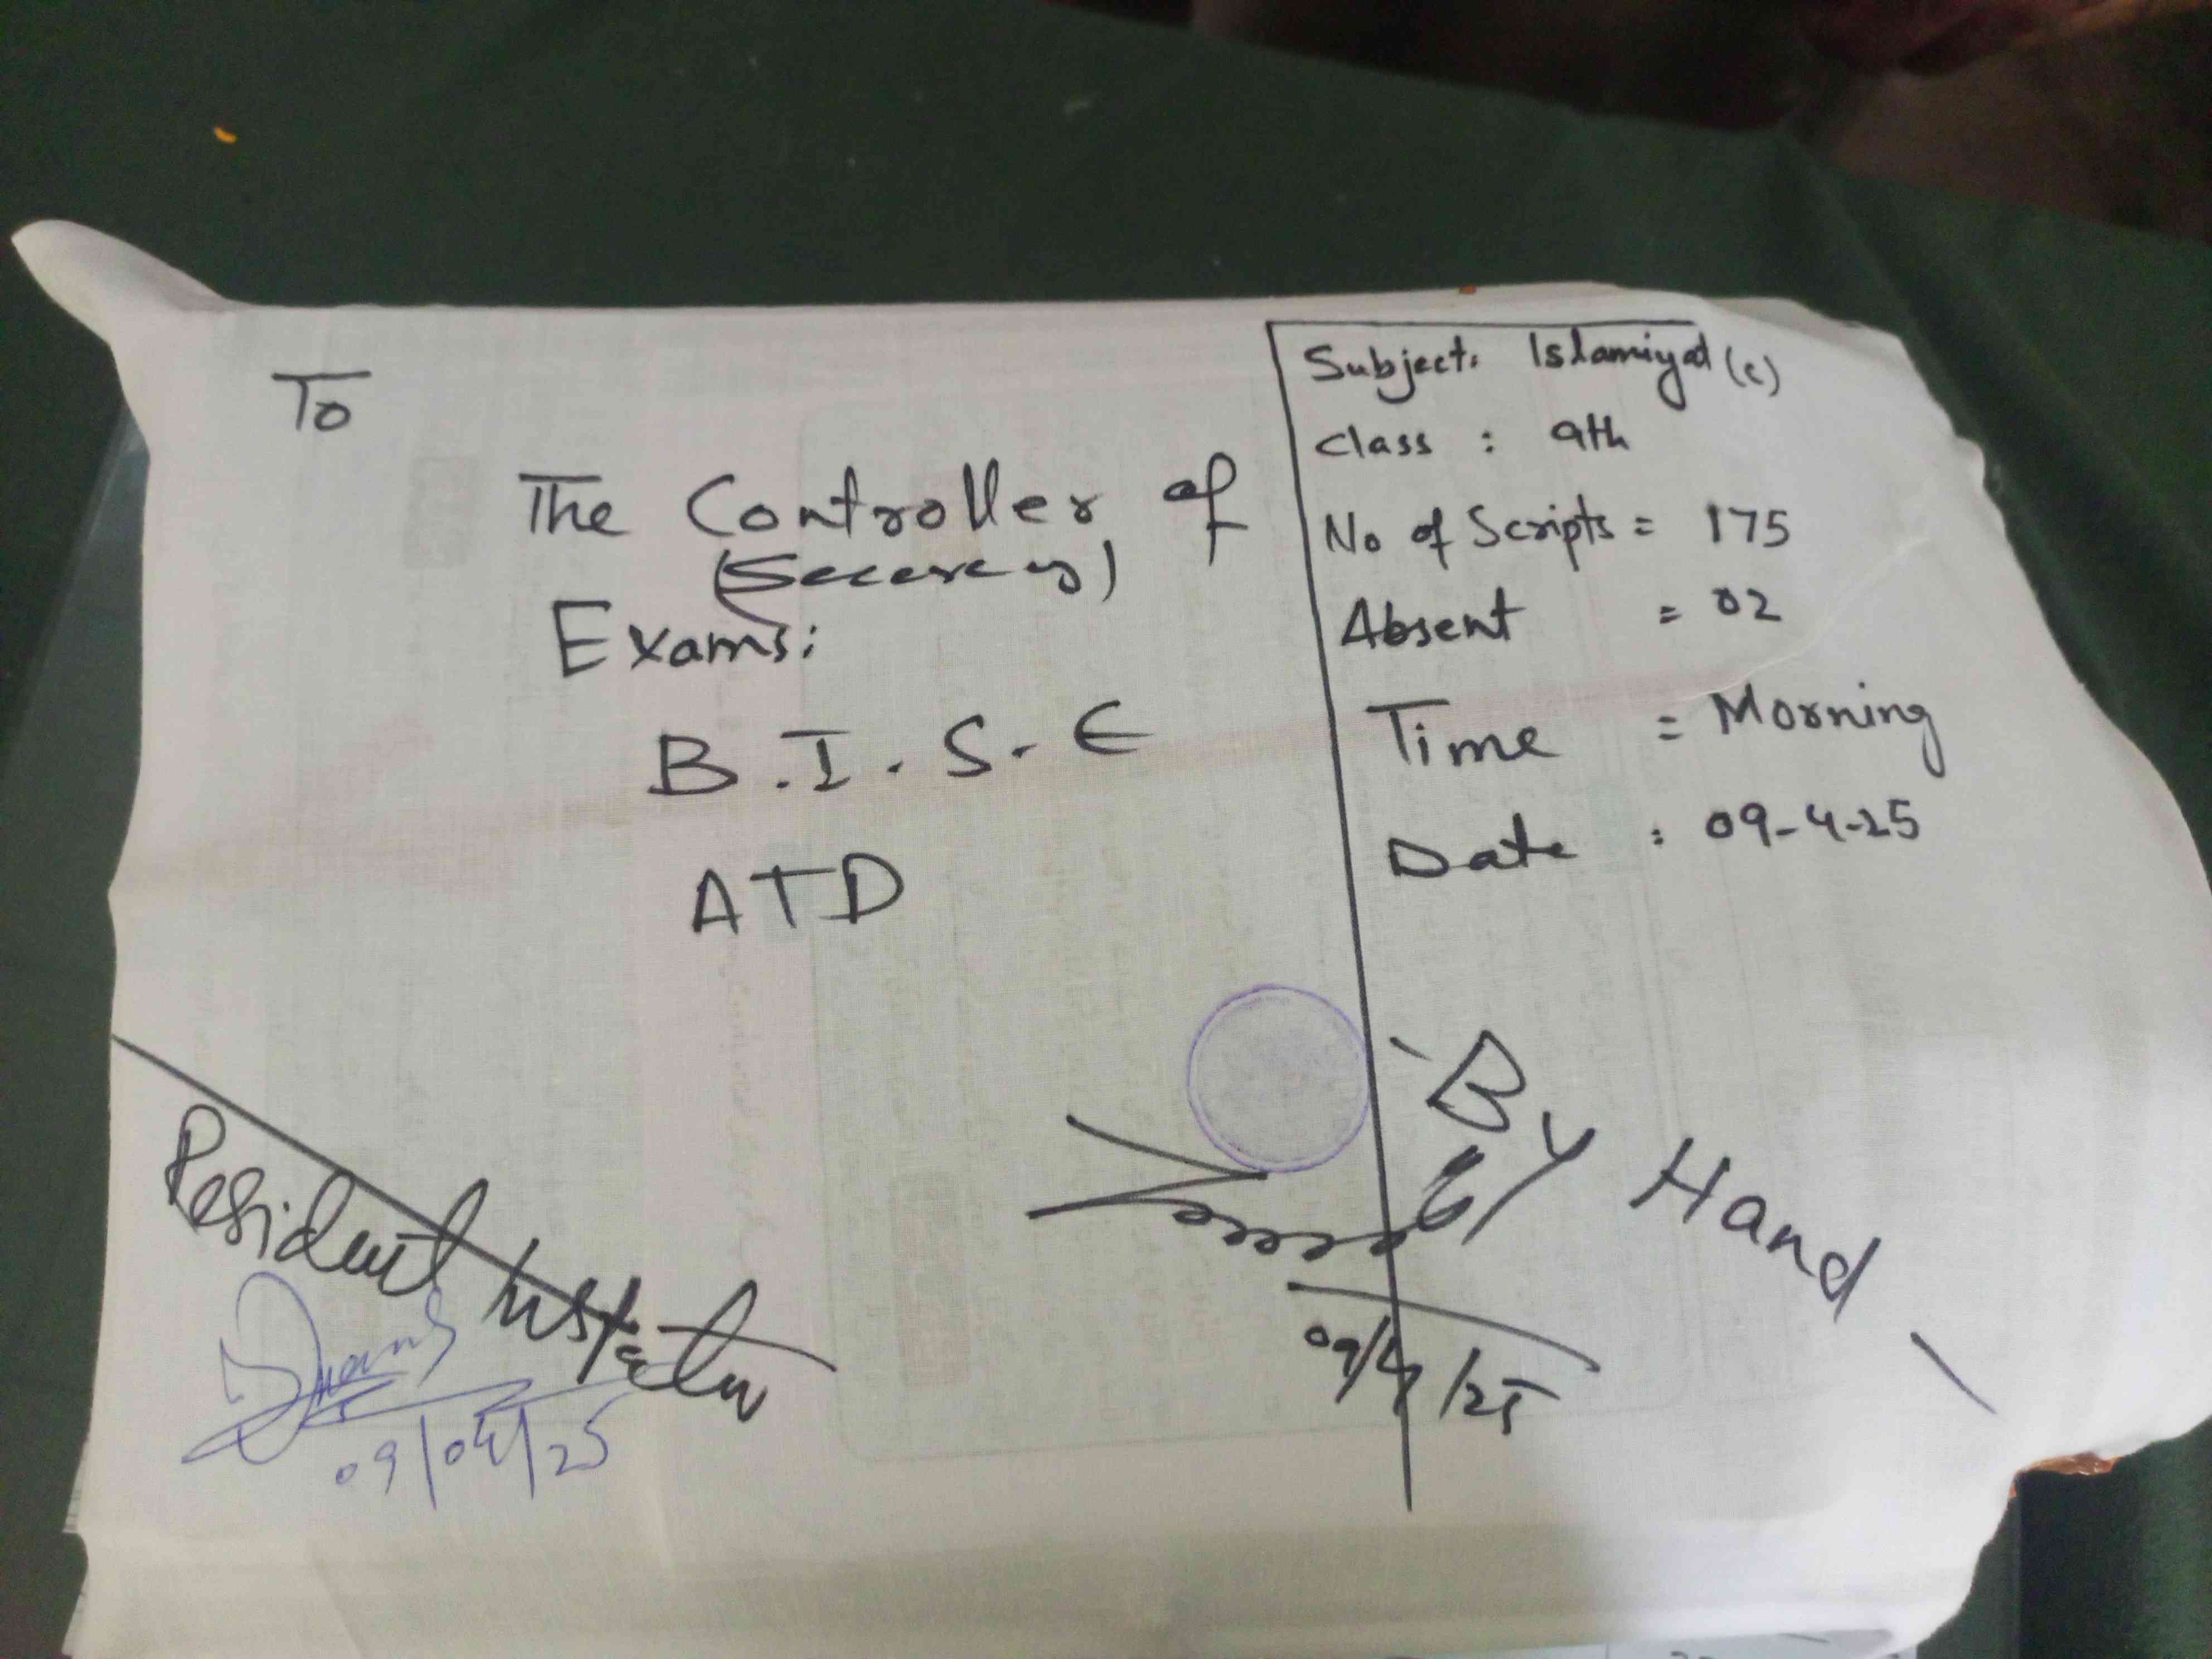 To
The Controller of
(Secrecy)
Exams:
B.I.S.E
ATD
Subject: Islamiyat (c)
Class : 9th
No of Scripts = 175
Absent = 02
Time = Morning
Date : 09-4-25
By Hand
09/4/25
Resident Inspector
09/04/25